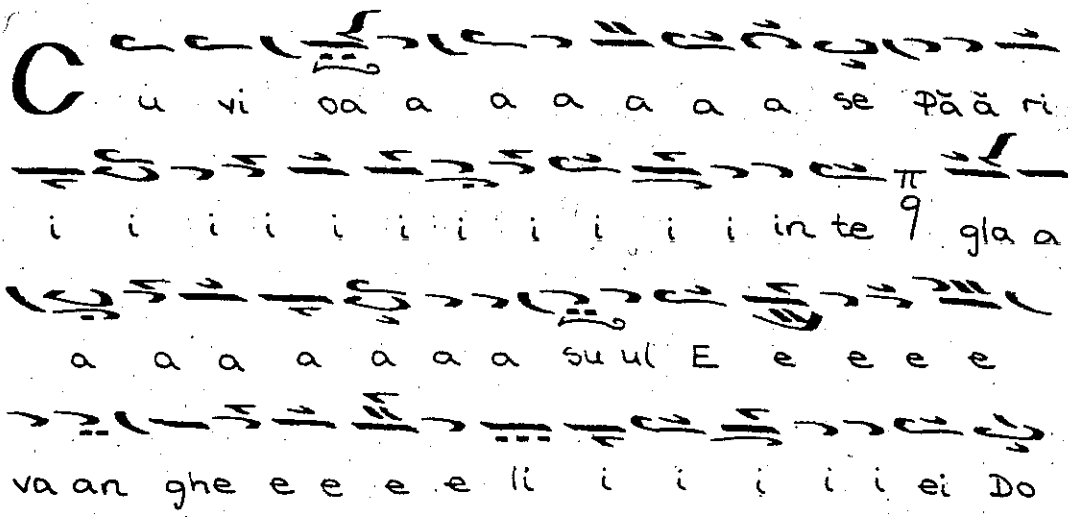 Cu vi oa a a a a a a se Pă ă ri
i i i i i i i i i i i in te π q gla a
a a a a a a a su ul E e e e e
va an ghe e e e e e li i i i i i ei Do